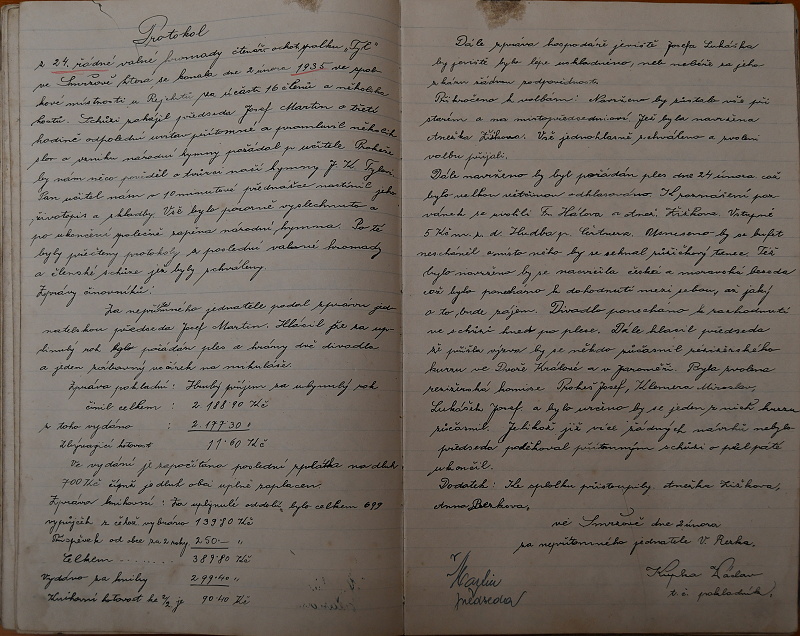 Protokol
z 24. řádné valné hromady čtenář. ochot. spolku „Tyl"
ve Smržově která se konala dne 2 února 1935 ve spol-
kové místnosti u Rejchrtů za účasti 16 členů a několika
hostů. Schůzi zahájil předseda Josef Martin o třetí
hodině odpolední uvítav přítomné a promluvil několik
slov o vzniku národní hymny požádal p. učitele Prokeše
by nám něco pověděl o tvůrci naší hymny J. K. Tylovi.
Pan učitel nám v 10 minutové přednášce nastínil jeho
životopis a skladby. Vše bylo pozorně vyslechnuto a
po ukončení společně zapěna národní hymna. Poté
byly přečteny protokoly z poslední valné hromady
a členské schůze jež byly schváleny.
Zprávy činovníků:
Za nepřítomného jednatele podal zprávu jed-
natelskou předseda Josef Martin. Hlásil že za up-
lynulý rok bylo pořádán ples a hrány dvě divadla
a jeden zábavný večírek na mikuláše.
Zpráva pokladní: Hrubý příjem za uplynulý rok
činil celkem : 2.188.90 Kč
z toho vydáno : 2.177.30 "
Zbývající hotovost 11.60 Kč
Ve vydání je započítána poslední splátka na dluh
700 Kč čímž je dluh obci uplně zaplacen.
Zpráva knihovní: Za uplynulé období bylo celkem 699
výpůjček z čehož vybráno 139.80 Kč
Příspěvek od obce za 2 roky 250.— "
Celkem ........ 389.80 Kč
Vydáno za knihy 299.40 "
Knihovní hotovost ke 2/2 je 90.40 Kč
Dále zpráva hospodáře jeviště Josefa Lukáška
by jeviště bylo lépe uskladněno, neb nebéře za jeho
zkázu žádnou zodpovědnost.
Přikročeno k volbám: Navrženo by zůstalo vše při
starém a na místopředsednictví Jež byla navržena
Anežka Křížkova. Vše jednohlasně schváleno a zvolení
volbu přijali.
Dále navrženo by byl pořádán ples dne 24 února což
bylo velkou většinou odhlasováno. K roznášení poz-
vánek se uvolili Fr. Hátova a Anež. Křížkova. Vstupné
5 Kč m. s. d. Hudba p. Cirtnera. Usneseno by se bufet
nescháněl a místo něho by se sehnal růžičkový tanec. Též
bylo navrženo by se nacvičila česká a moravská beseda
což bylo ponecháno k dohodnutí mezi sebou, až jaký
o to bude zájem. Divadlo ponecháno k rozhodnutí
ve schůzi hned po plese. Dále hlásil předseda
že přišla výzva by se někdo zúčasnil režisérského
kurzu ve Dvoře Králové a v Jaroměři. Byla zvolena
režisérská komise Prokeš Josef, Klomera Miroslav,
Lukášek Josef a bylo určeno by se jeden z nich kurzu
zúčasnil. Jelikož již více žádných návrhů nebylo
předseda poděkoval přítomným schůzi o půl páté
ukončil.
Dodatek: Ke spolku přistoupily Anežka Křížkova,
Anna Berkova,
ve Smržově dne 2 února
za nepřítomného jednatele V. Rezka.
Martin
předseda
Kupka Václav
t. č. pokladník.